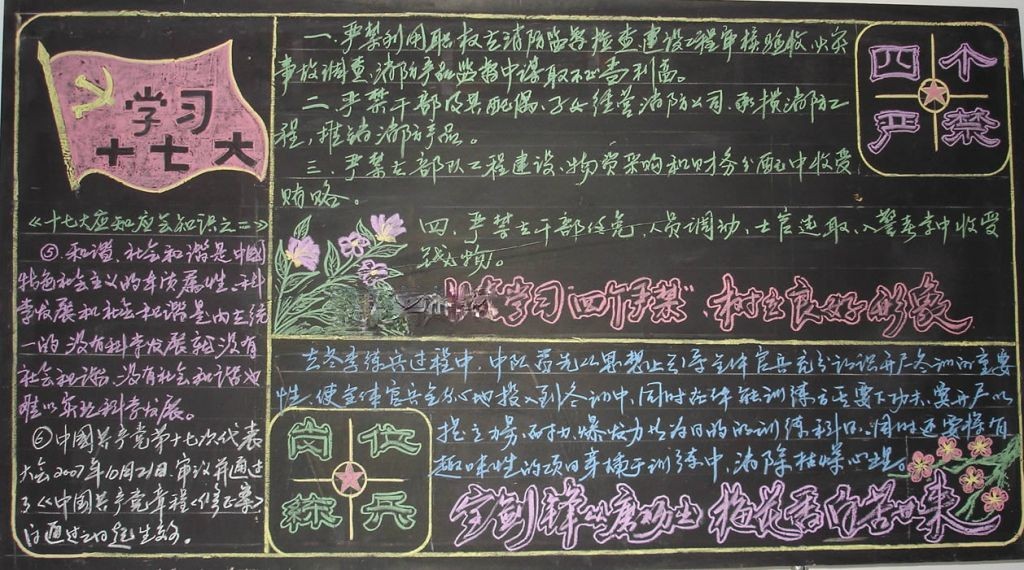 学习
十七大
《十七大应知应会知识之二》
⑤和谐,社会和谐是中国
特色社会主义的本质属性,科
学发展和社会和谐是内在统
一的,没有科学发展就没有
社会和谐,没有社会和谐也
难以实现科学发展。
⑥中國共产党第十七次代表
大会2007年10月21日审议并通过
了《中國共产党章程(修正案)》
自通过之日起生效。
一、严禁利用职权在消防监督检查、建设工程审核验收、火灾
事故调查、消防产品监督中谋取不正当利益。
二、严禁干部及其配偶、子女经营消防公司,承揽消防工
程,推销消防产品。
三、严禁在部队工程建设、物资采购和财务分配中收受
贿赂。
四、严禁在干部任免、人员调动、士官选取、入警考学中收受
钱物。
四个
严禁
学习“四个严禁”,树立良好形象
在冬季练兵过程中,中队首先从思想上引导全体官兵充分认识开展冬训的重要
性,使全体官兵全身心地投入到冬训中,同时在体能训练方面要下功夫,要开展以
提高力量、耐力、爆发力为目的的训练科目。同时还要将有
趣味性的项目穿插于训练中,消除枯燥心理。
岗位
练兵
宝剑锋从磨砺出 梅花香自苦寒来